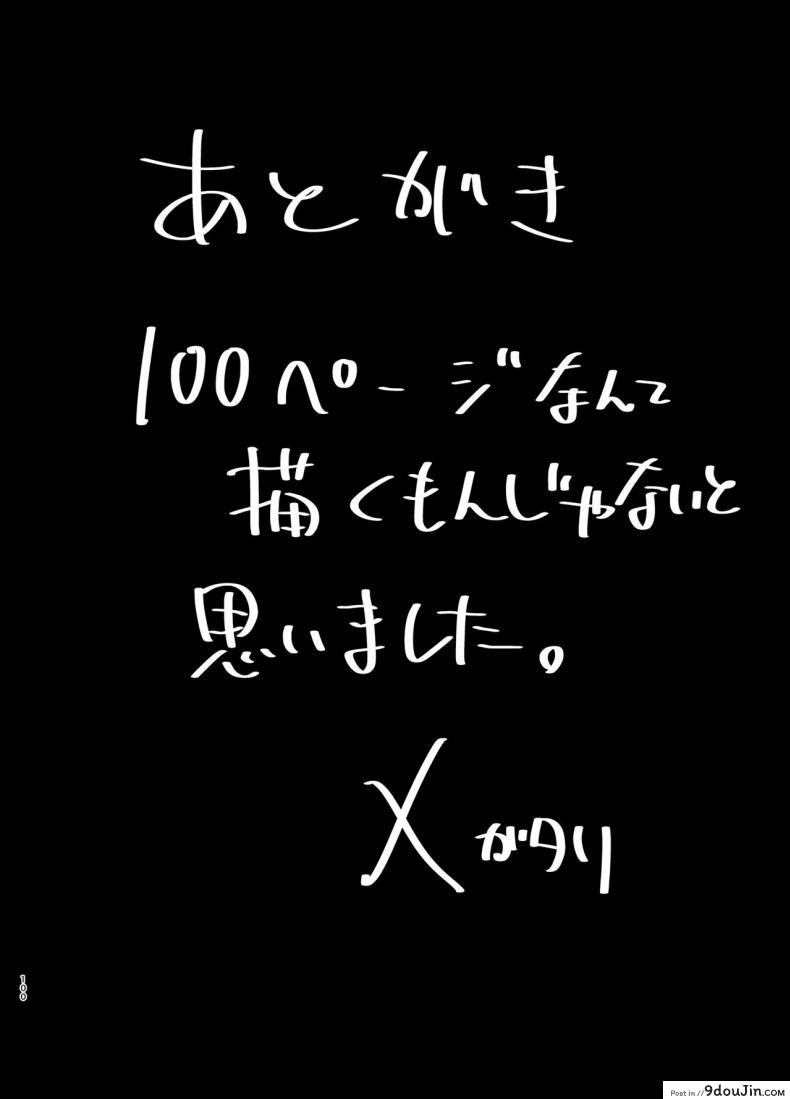 あとがき
100ページなんて
描くもんじゃないと
思いました。
メガタリ
100
Post in // 9douJin.com